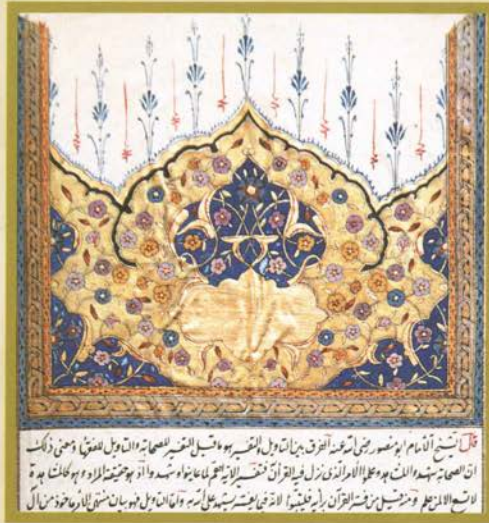 قال الشيخ الامام ابو منصور رضي الله عنه الفرق بين التاويل والتفسير هو ما قيل التفسير للصحابة والتاويل للفقهاء ومعنى ذلك
ان الصحابة شهدوا المشاهد وعلموا الامر الذى نزل فيه القرآن فتفسير الآية لهم لما عاينوا وشهدوا اذ هو حقيقة المراد وهو كالمشاهدة
لا تسمع الا ممن علم ومنه قيل من فسر القرآن برأيه فليتبوأ لانه فيما يفسر يشهد على الله به واما التاويل فهو بيان منتهى الامر مأخوذ من آل